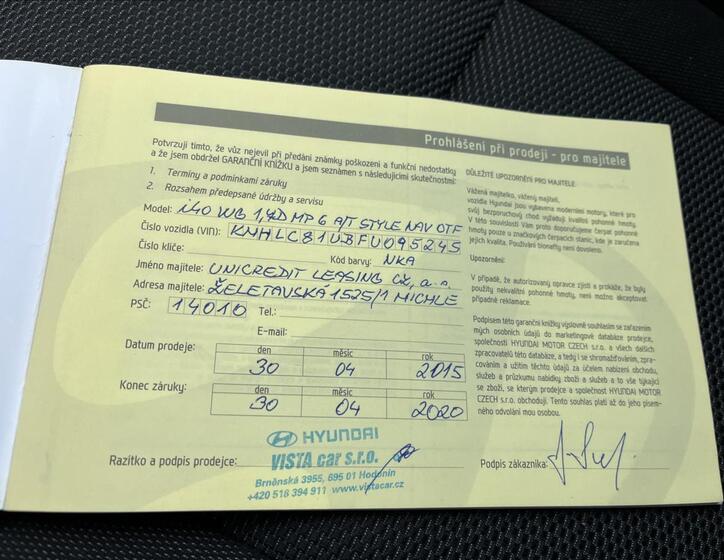 Prohlášení při prodeji - pro majitele
Potvrzuji tímto, že vůz nejevil při předání známky poškození a funkční nedostatky
a že jsem obdržel GARANČNÍ KNÍŽKU a jsem seznámen s následujícími skutečnostmi:
1. Termíny a podmínkami záruky
2. Rozsahem předepsané údržby a servisu
Model: i40 WG 1,7D MP6 A/T STYLE NAV OTF
Číslo vozidla (VIN): KMHLC81UBFU095245
Číslo klíče: Kód barvy: NKA
Jméno majitele: UNICREDIT LEASING CZ, a.s.
Adresa majitele: ŽELETAVSKÁ 1525/1 MICHLE
PSČ: 14010 Tel.:
E-mail:
Datum prodeje: den měsíc rok
30 04 2015
Konec záruky: den měsíc rok
30 04 2020
HYUNDAI
VISTA car s.r.o.
Razítko a podpis prodejce:
Brněnská 3955, 695 01 Hodonín
+420 518 394 911 www.vistacar.cz
DŮLEŽITÉ UPOZORNĚNÍ PRO MAJITELE:
Vážená majitelko, vážený majiteli,
vozidla Hyundai jsou vybavena moderními motory, které pro
svůj bezporuchový chod vyžadují kvalitní pohonné hmoty.
V této souvislosti Vám proto doporučujeme čerpat pohonné
hmoty pouze u značkových čerpacích stanic, kde je zaručena
jejich kvalita. Používání bionafty není dovoleno.
Upozornění:
V případě, že autorizovaný opravce zjistí a prokáže, že byly
použity nekvalitní pohonné hmoty, není možno akceptovat
případné reklamace.
Podpisem této garanční knížky výslovně souhlasím se zařazením
mých osobních údajů do marketingové databáze prodejce,
společnosti HYUNDAI MOTOR CZECH s.r.o. a všech dalších
zpracovatelů této databáze, a tedy i se shromažďováním, zpra-
cováním a užitím těchto údajů za účelem nabízení obchodu,
služeb a průzkumu nabídky zboží a služeb a to vše týkající
se zboží, se kterým prodejce a společnost HYUNDAI MOTOR
CZECH s.r.o. obchodují. Tento souhlas platí až do jeho písem-
ného odvolání mou osobou.
Podpis zákazníka: